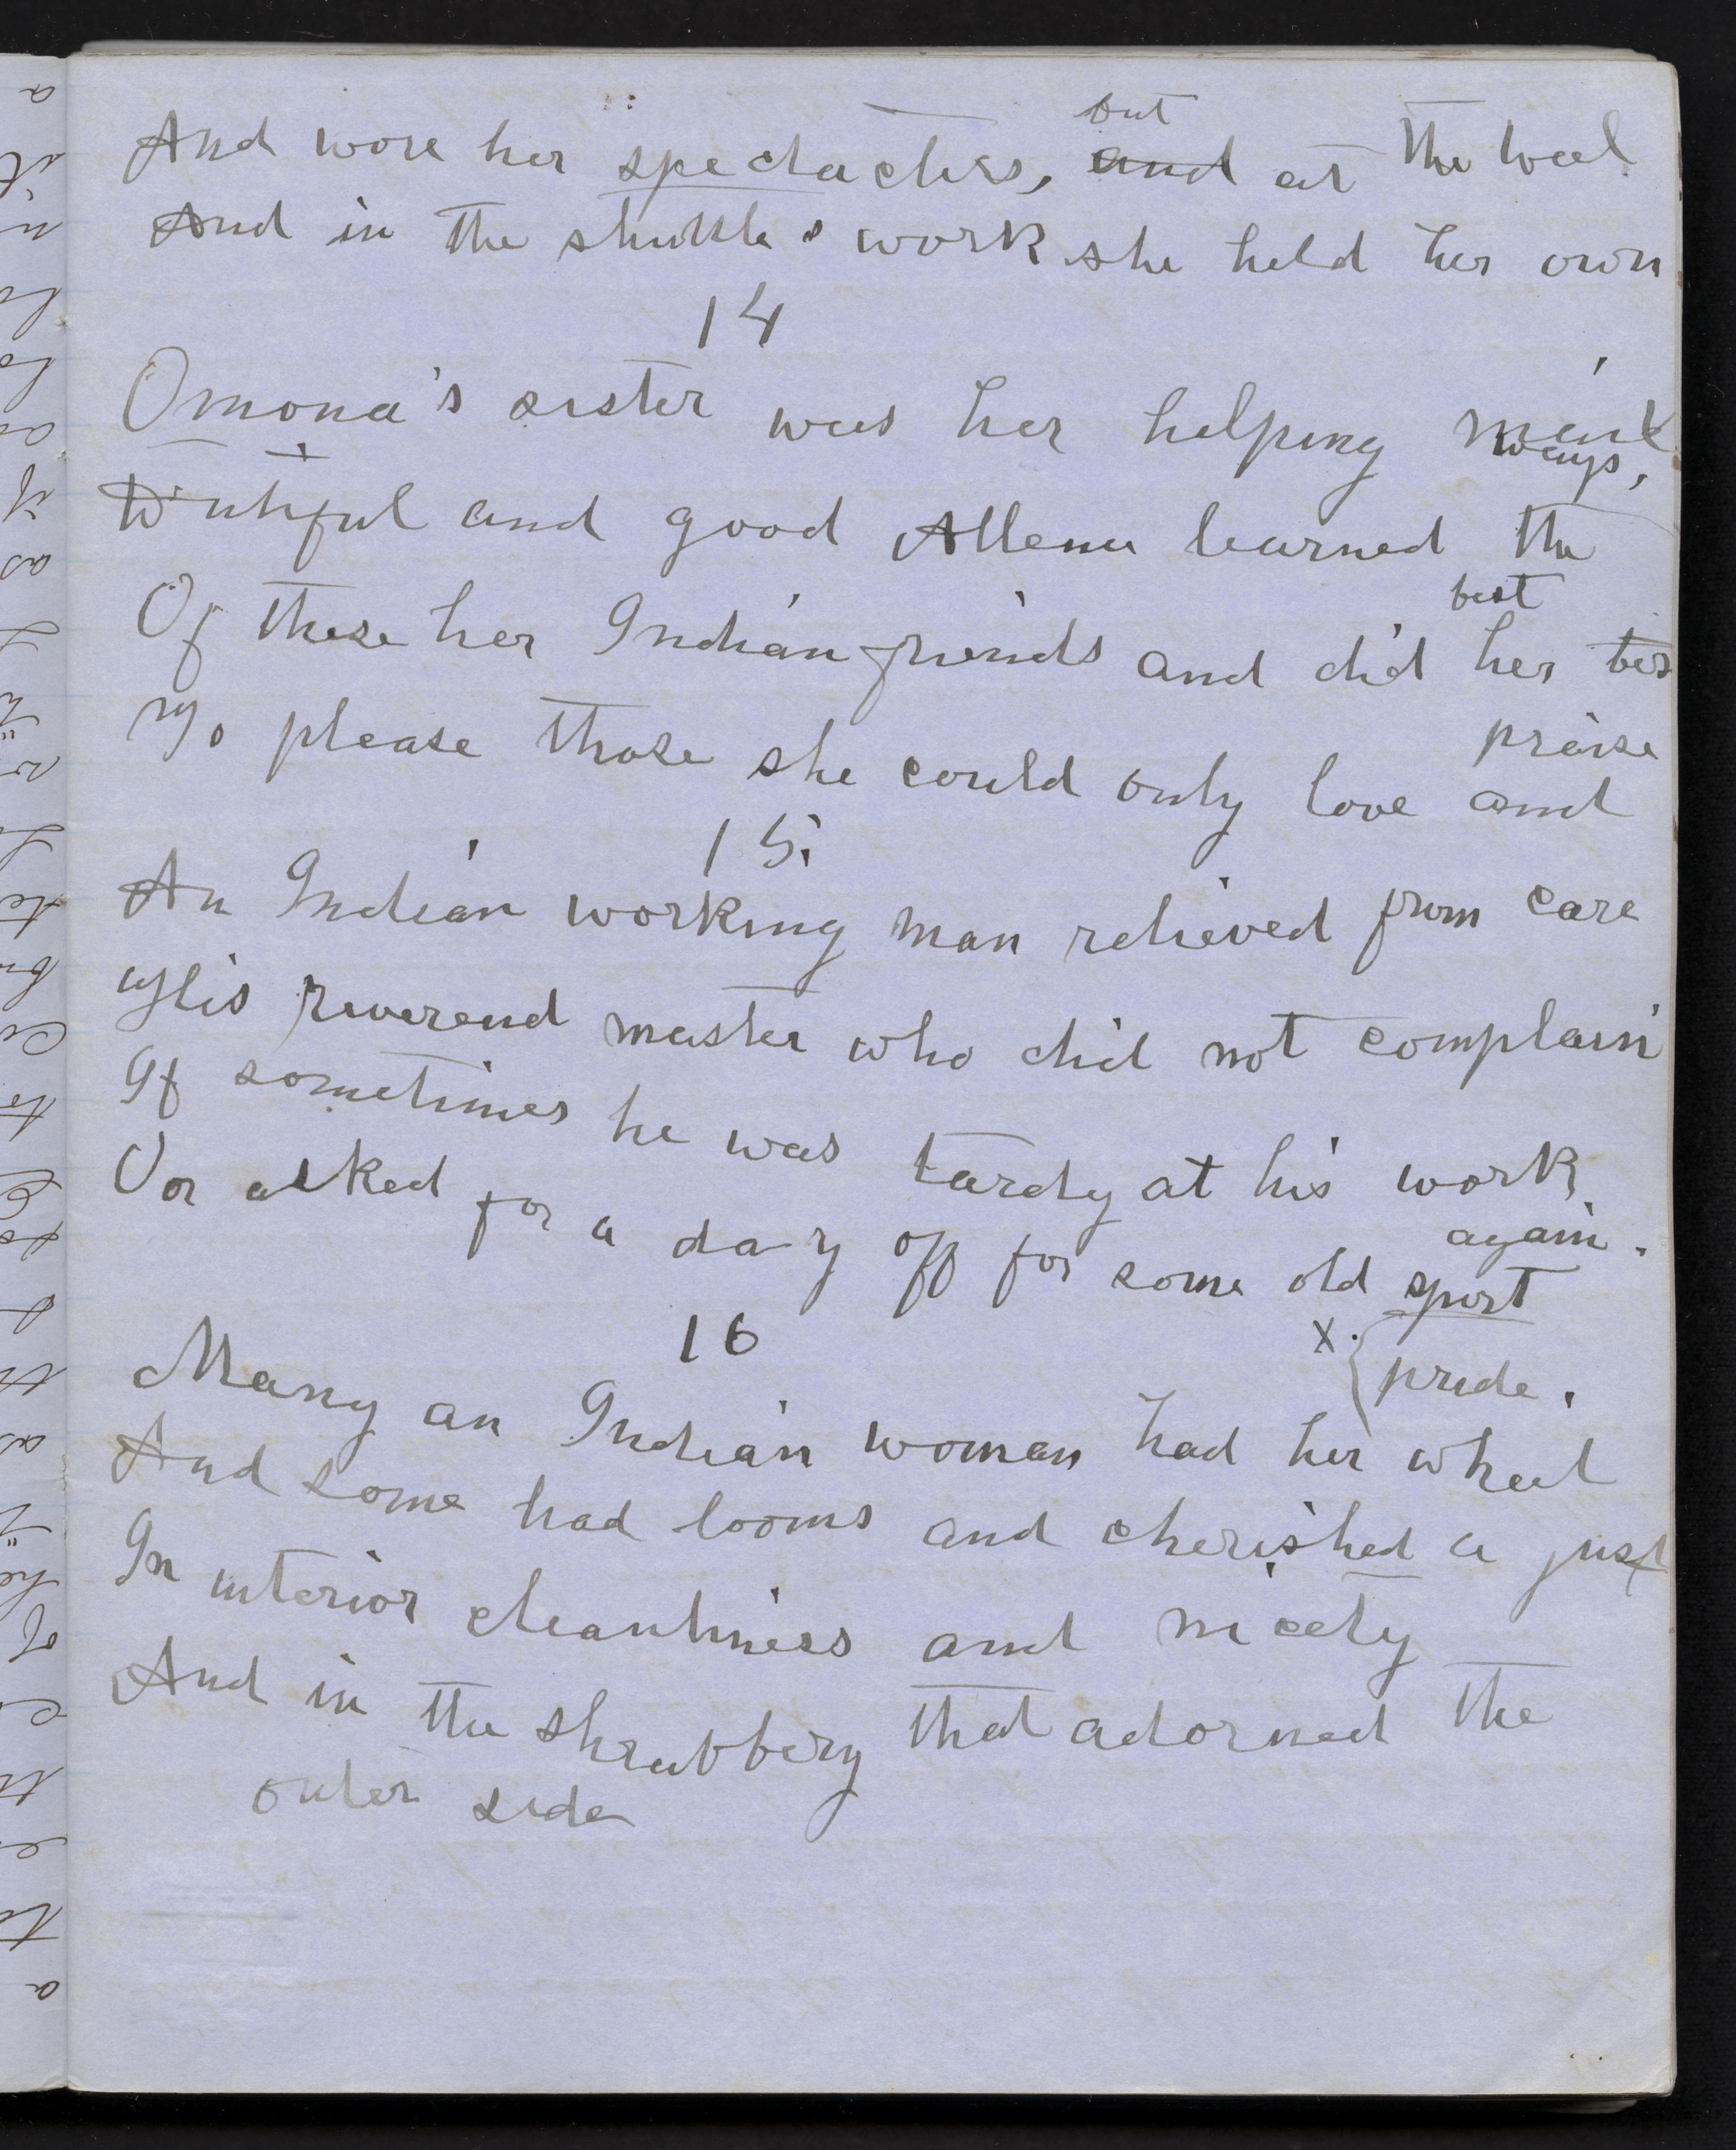 And wore her spectacles, and but at the
And in the shuttle's work she held her own
14
Omona's sister was her helping
Dutiful and good Allena learned the ways,
Of these her Indian friends and did her best
To please those she could only love and praise
15
An Indian working man relieved from care
His reverend master who did not complain
If sometimes he was tardy at his work
Or asked for a day off for some old sport again.
16
Many an Indian woman had her wheel
And some had looms and cherished a just pride.
In interior cleanliness and nicety
And in the shrubbery that adorned the
outer side